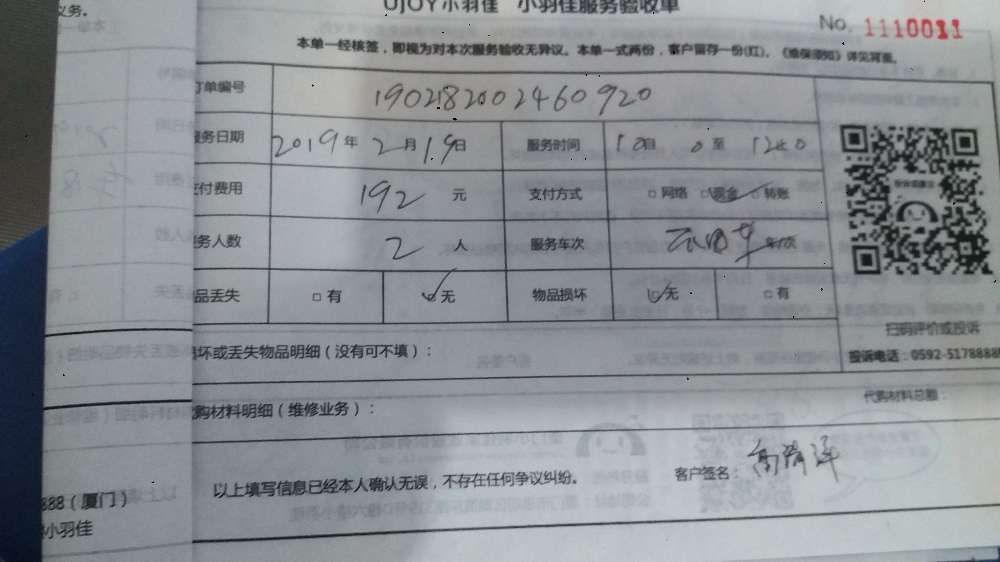 UJOY小羽佳 小羽佳服务验收单
No. 1110011
本单一经核签，即视为对本次服务验收无异议。本单一式两份，客户留存一份(红)。《维保须知》详见背面。
订单编号 1902182002460920
服务日期 2019年2月19日 服务时间 10 0至12 0
支付费用 192元 支付方式 □网络 □现金 □转账
服务人数 2人 服务车次 车次
品丢失 □有 □无 物品损坏 □无 □有
扫码评价或投诉
坏或丢失物品明细（没有可不填）：
投诉电话：0592-5178888
代购材料总额：
购材料明细（维修业务）：
以上填写信息已经本人确认无误，不存在任何争议纠纷。
客户签名：
888（厦门）
小羽佳
义务。